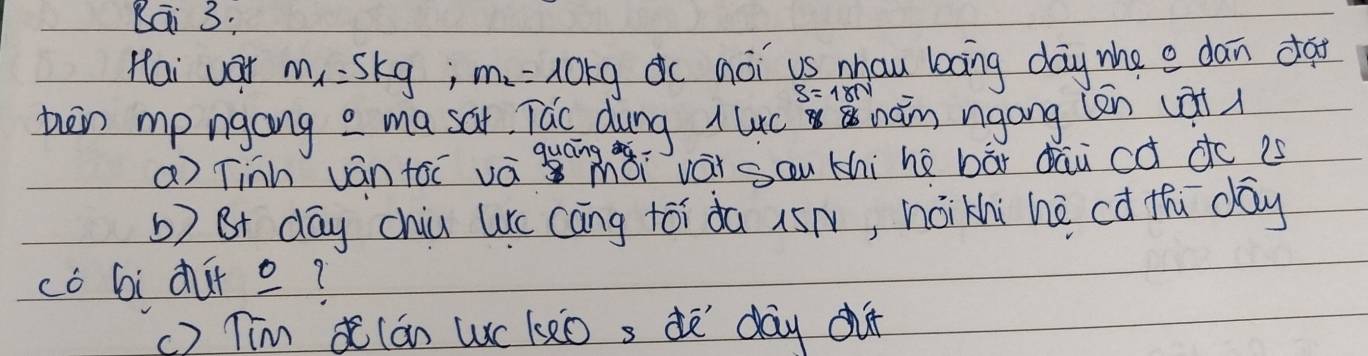 Bài 3:
Hai vật m₁ = 5kg ; m₂ = 10kg đc nối vs nhau bằng dây nhẹ o dãn đặt
trên mp ngang o ma sát. Tác dụng 1 lực S = 18N nằm ngang lên vật 1
a) Tính vận tốc và quãng đg mỗi vật sau khi hệ bắt đầu cđ đc 2s
b) Bt dây chịu lực căng tối đa 15N, hỏi khi hệ cđ thì dây
có bị đứt o ?
c) Tìm độ lớn lực kéo s để dây đứt